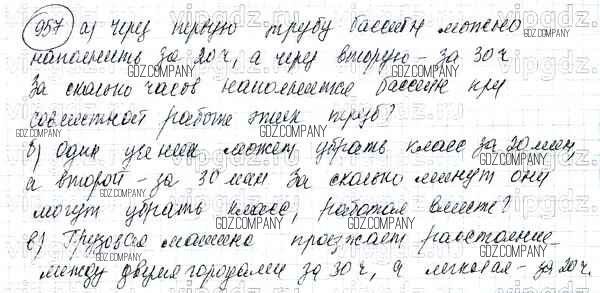 957 а) Через первую трубу бассейн можно
наполнить за 20 ч, а через вторую – за 30 ч
За сколько часов наполнится бассейн при
совместной работе этих труб?
б) Один ученик может убрать класс за 20 мин,
а второй – за 30 мин. За сколько минут они
могут убрать класс, работая вместе?
в) Грузовая машина проезжает расстояние
между двумя городами за 30 ч, а легковая – за 20 ч.
GDZ.COMPANY
vipgdz.ru